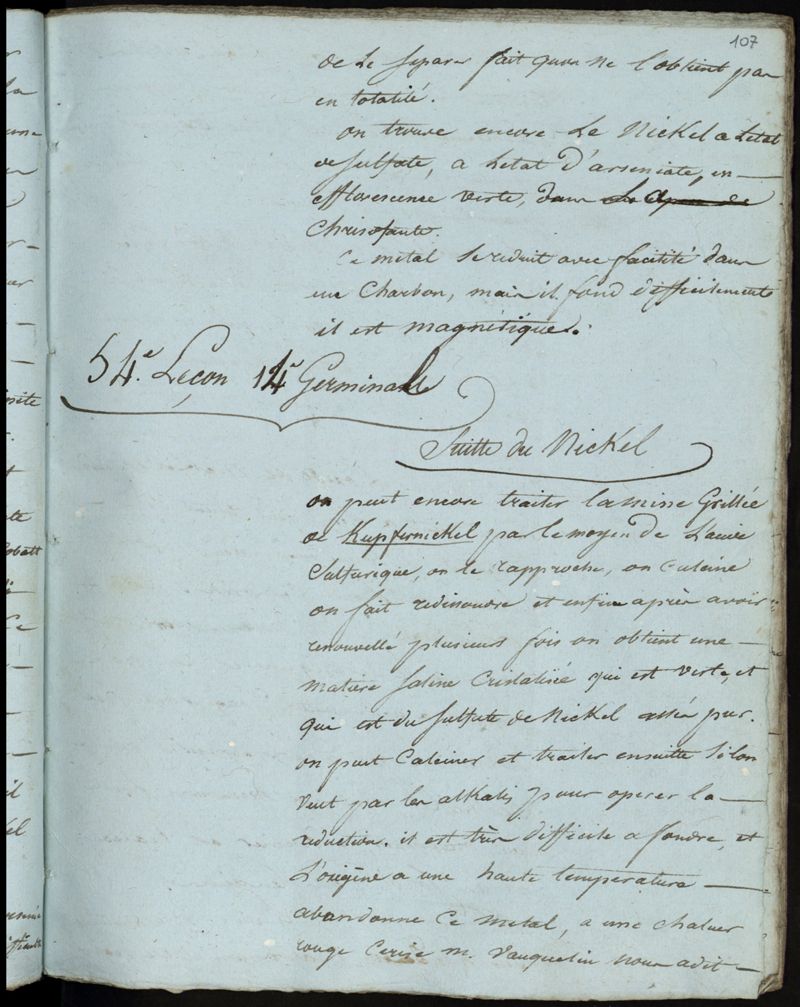 107
de le separer fait quon ne l'obtient pas
en totalité.
on trouve encore le Nickel a letat
de sulfate, a letat d'arseniate, en
efflorescence verte, dans
Chrisofaute.
Ce metal se reduit avec facilité dans
un Charbon, mais il fond difficilement
il est magnétique.
54e. Leçon 14e Germinal
Suitte du Nickel
on peut encore traiter la mine Grillée
de Kupfernickel par le moyen de l'acide
Sulfurique, on le rapproche, on calcine
on fait redissoudre et enfin après avoir
renouvellé plusieurs fois on obtient une
matiere saline Cristalisée qui est verte, et
qui est du sulfate de Nickel assés pur.
on peut Calciner et traiter ensuitte si lon
veut par les alkalis pour operer la
reduction. il est très difficile a fondre, et
L'oxigène a une haute temperature
abandonne Ce metal, a une chaleur
rouge Cerise m. Vauquelin nous a dit